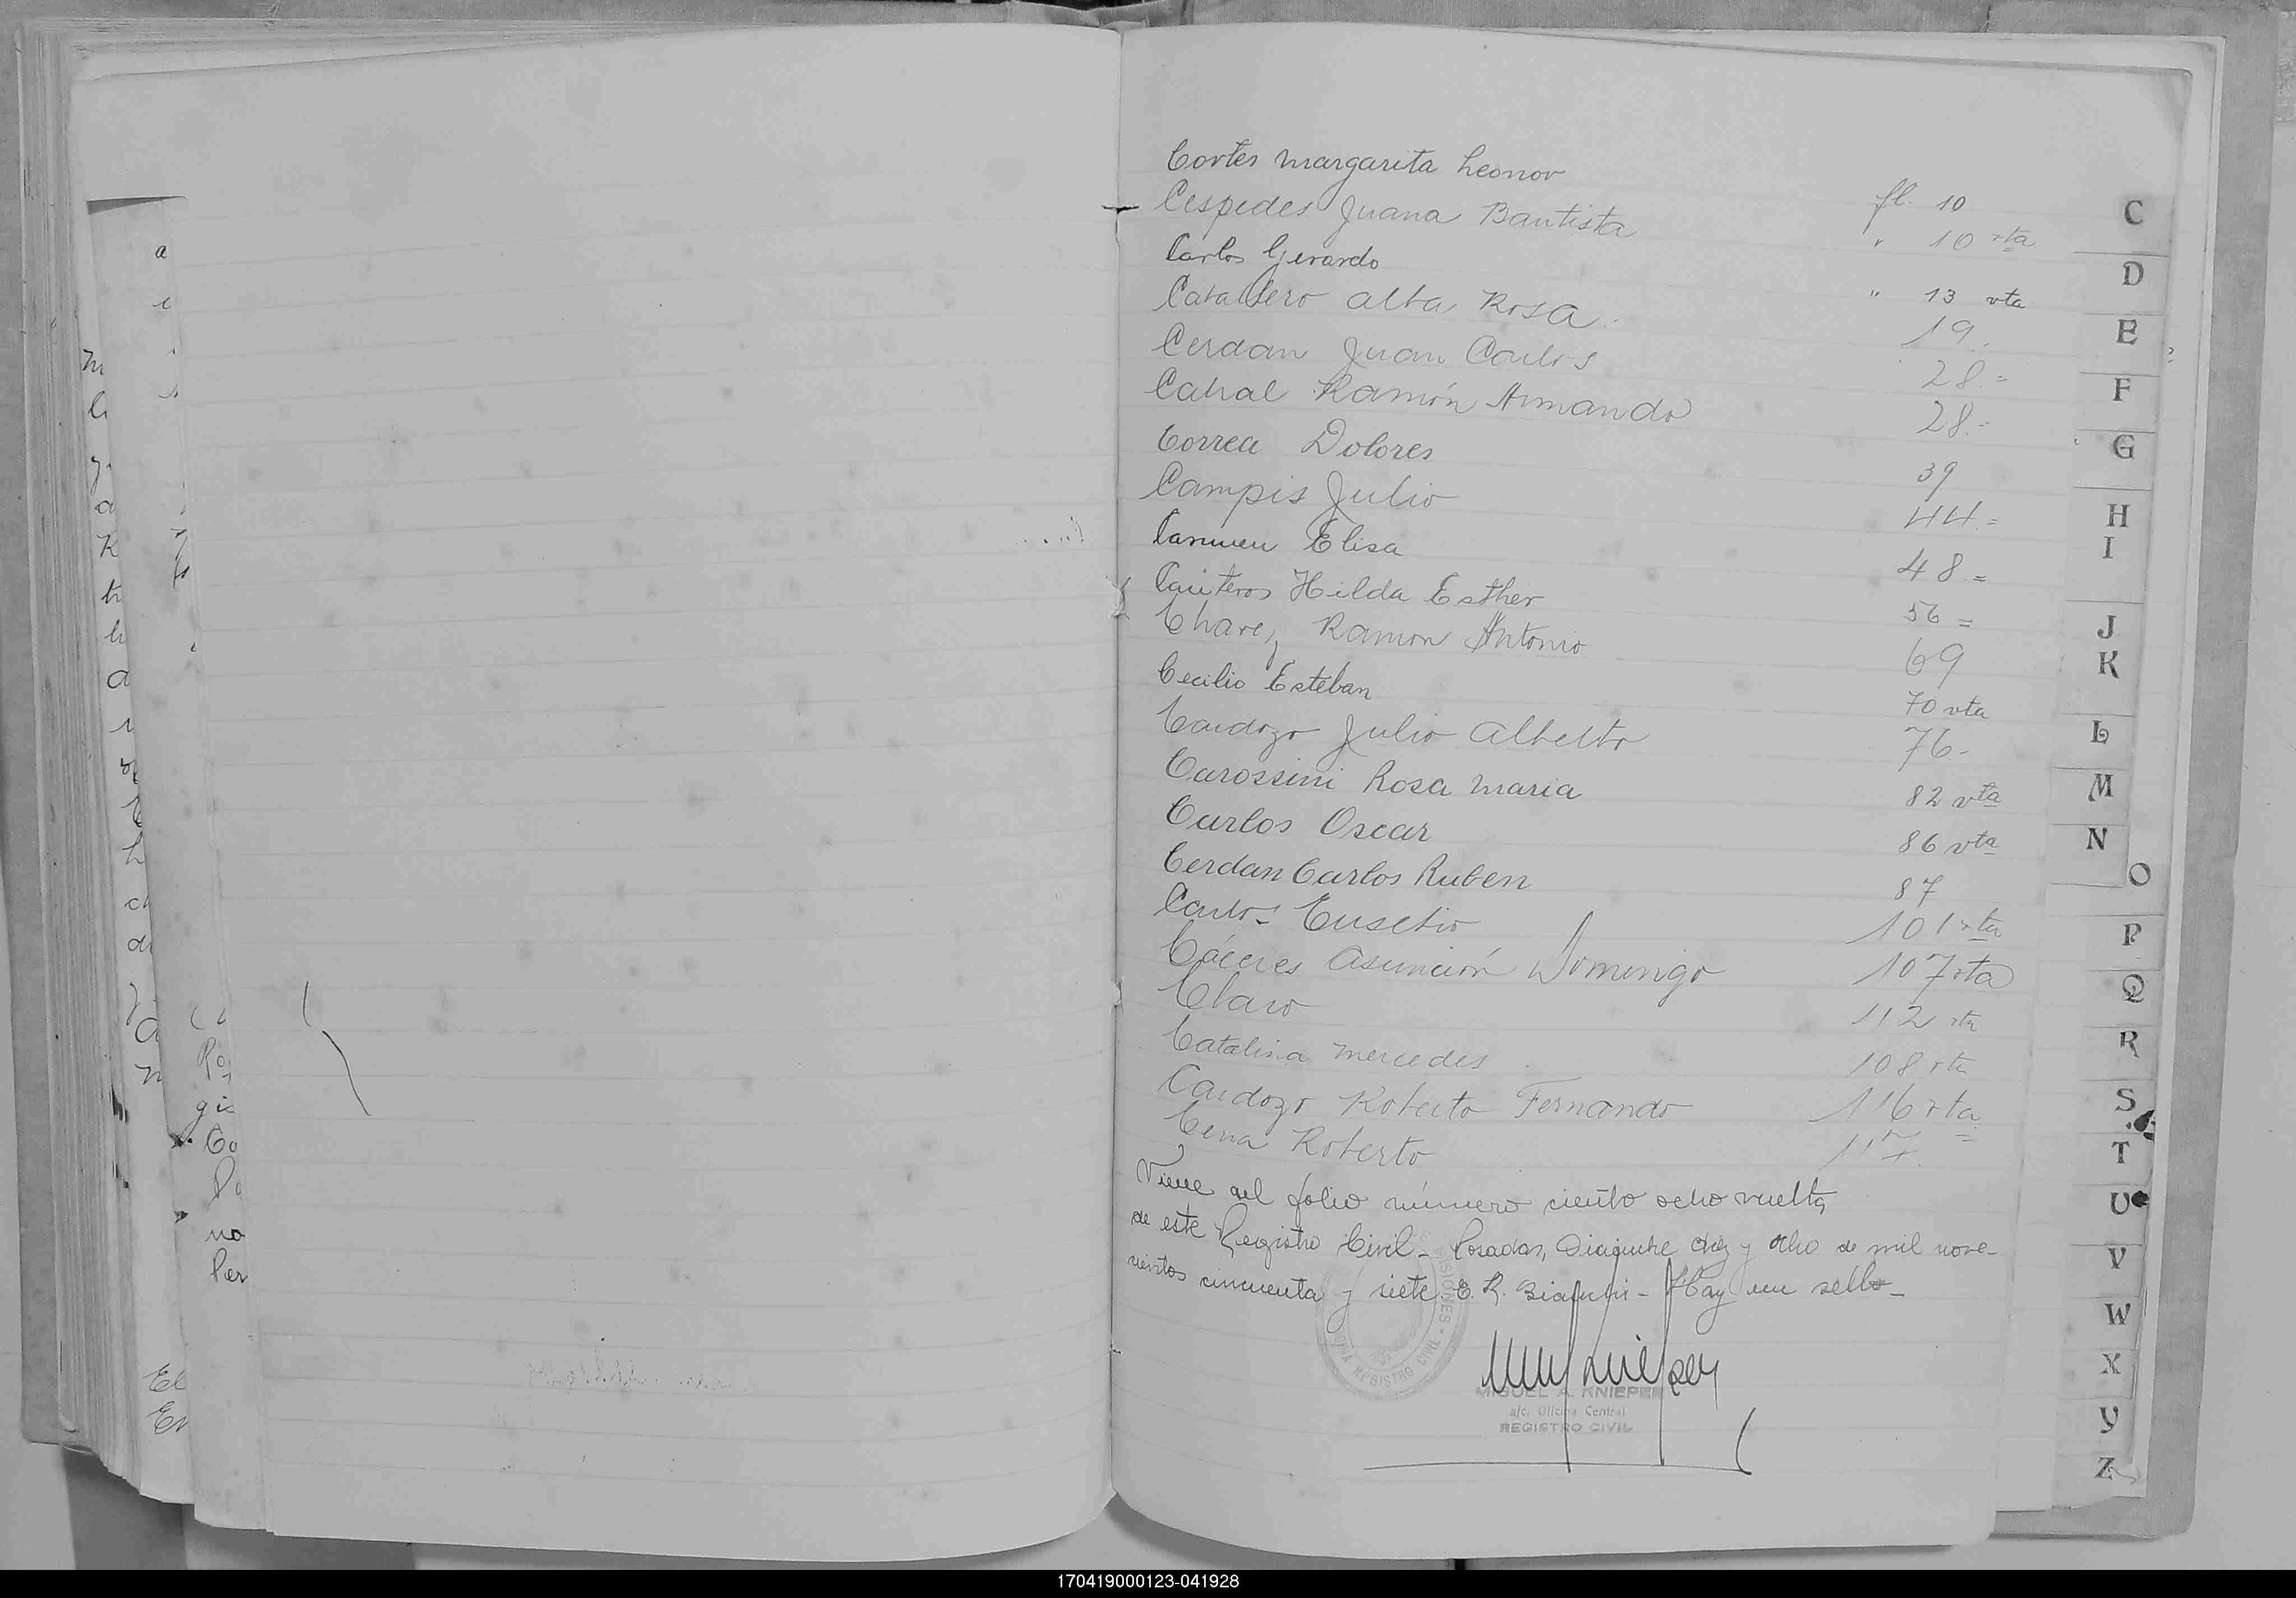 Cortes Margarita Leonor fl. 10
Cespedes Juana Bautista " 10 vta
Carlos Gerardo " 13 vta
Caballero Alba Rosa. 19.
Cerdan Juan Carlos 28.=
Cabral Ramón Armando 28.=
Correa Dolores 39
Campis Julio 44.=
Carmen Elisa 48.=
Hilda Esther 56=
Chavez Ramon Antonio 69
Cecilio Esteban 70 vta
Cardozo Julio Alberto 76-
Carossini Rosa Maria 82 vta
Carlos Oscar 86 vta
Cerdan Carlos Ruben 87
Carlos Eusebio 101 vta
Cáceres Asunción Domingo 107 vta
Claro 112 vta
Catalina Mercedes 108 vta
Cardozo Roberto Fernando 116 vta
Cena Roberto 117.
Viene del folio número ciento ocho vuelta
de este Registro Civil- Posadas, Diciembre diez y ocho de mil nove-
cientos cincuenta y siete. E. R. - Hay un sello-
MISIONES - REGISTRO CIVIL
MIGUEL A. KNIEPER
a/c. Oficina Central
REGISTRO CIVIL
C
D
E
F
G
H
I
J
K
L
M
N
O
P
Q
R
S
T
U
V
W
X
Y
Z
170419000123-041928